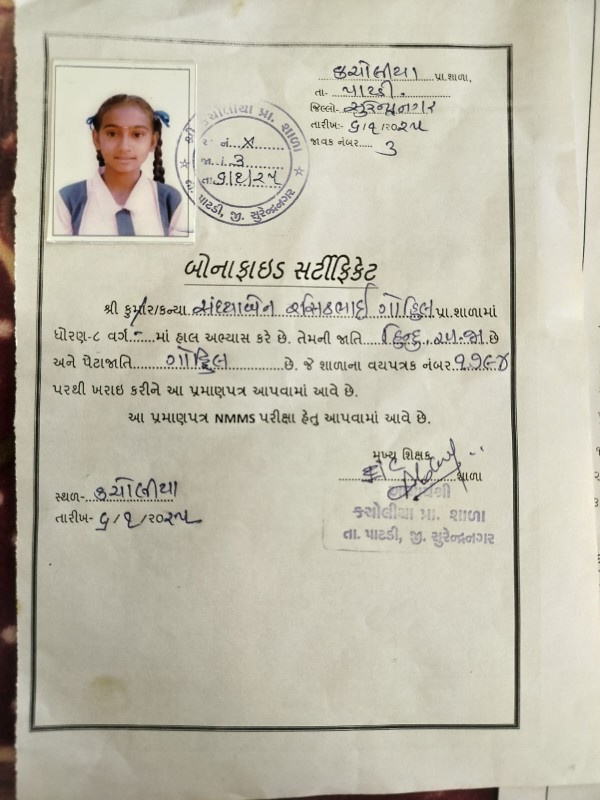 કચોલીયા પ્રા.શાળા,
તા- પાટડી.
જિલ્લો- સુરેન્દ્રનગર
તારીખ:- ૬/૧/૨૦૨૫
જાવક નંબર..... 3
કચોલીયા પ્રા. શાળા
નં. X
જા. નં. 3
તા. ૬/૧/૨૫
તા. પાટડી, જી. સુરેન્દ્રનગર
બોનાફાઇડ સર્ટીફિકેટ
શ્રી કુમાર/કન્યા સંધ્યાબેન રસિકભાઈ ગોહિલ પ્રા.શાળામાં
ધોરણ-૮ વર્ગ - માં હાલ અભ્યાસ કરે છે. તેમની જાતિ હિન્દુ, રાજ છે
અને પેટાજાતિ ગોહિલ છે. જે શાળાના વયપત્રક નંબર ૧૭૯૪
પરથી ખરાઇ કરીને આ પ્રમાણપત્ર આપવામાં આવે છે.
આ પ્રમાણપત્ર NMMS પરીક્ષા હેતુ આપવામાં આવે છે.
મુખ્ય શિક્ષક
શાળા
સ્થળ- કચોલીયા
તારીખ- ૬/૧/૨૦૨૫
કચોલીયા પ્રા. શાળા
તા. પાટડી, જી. સુરેન્દ્રનગર